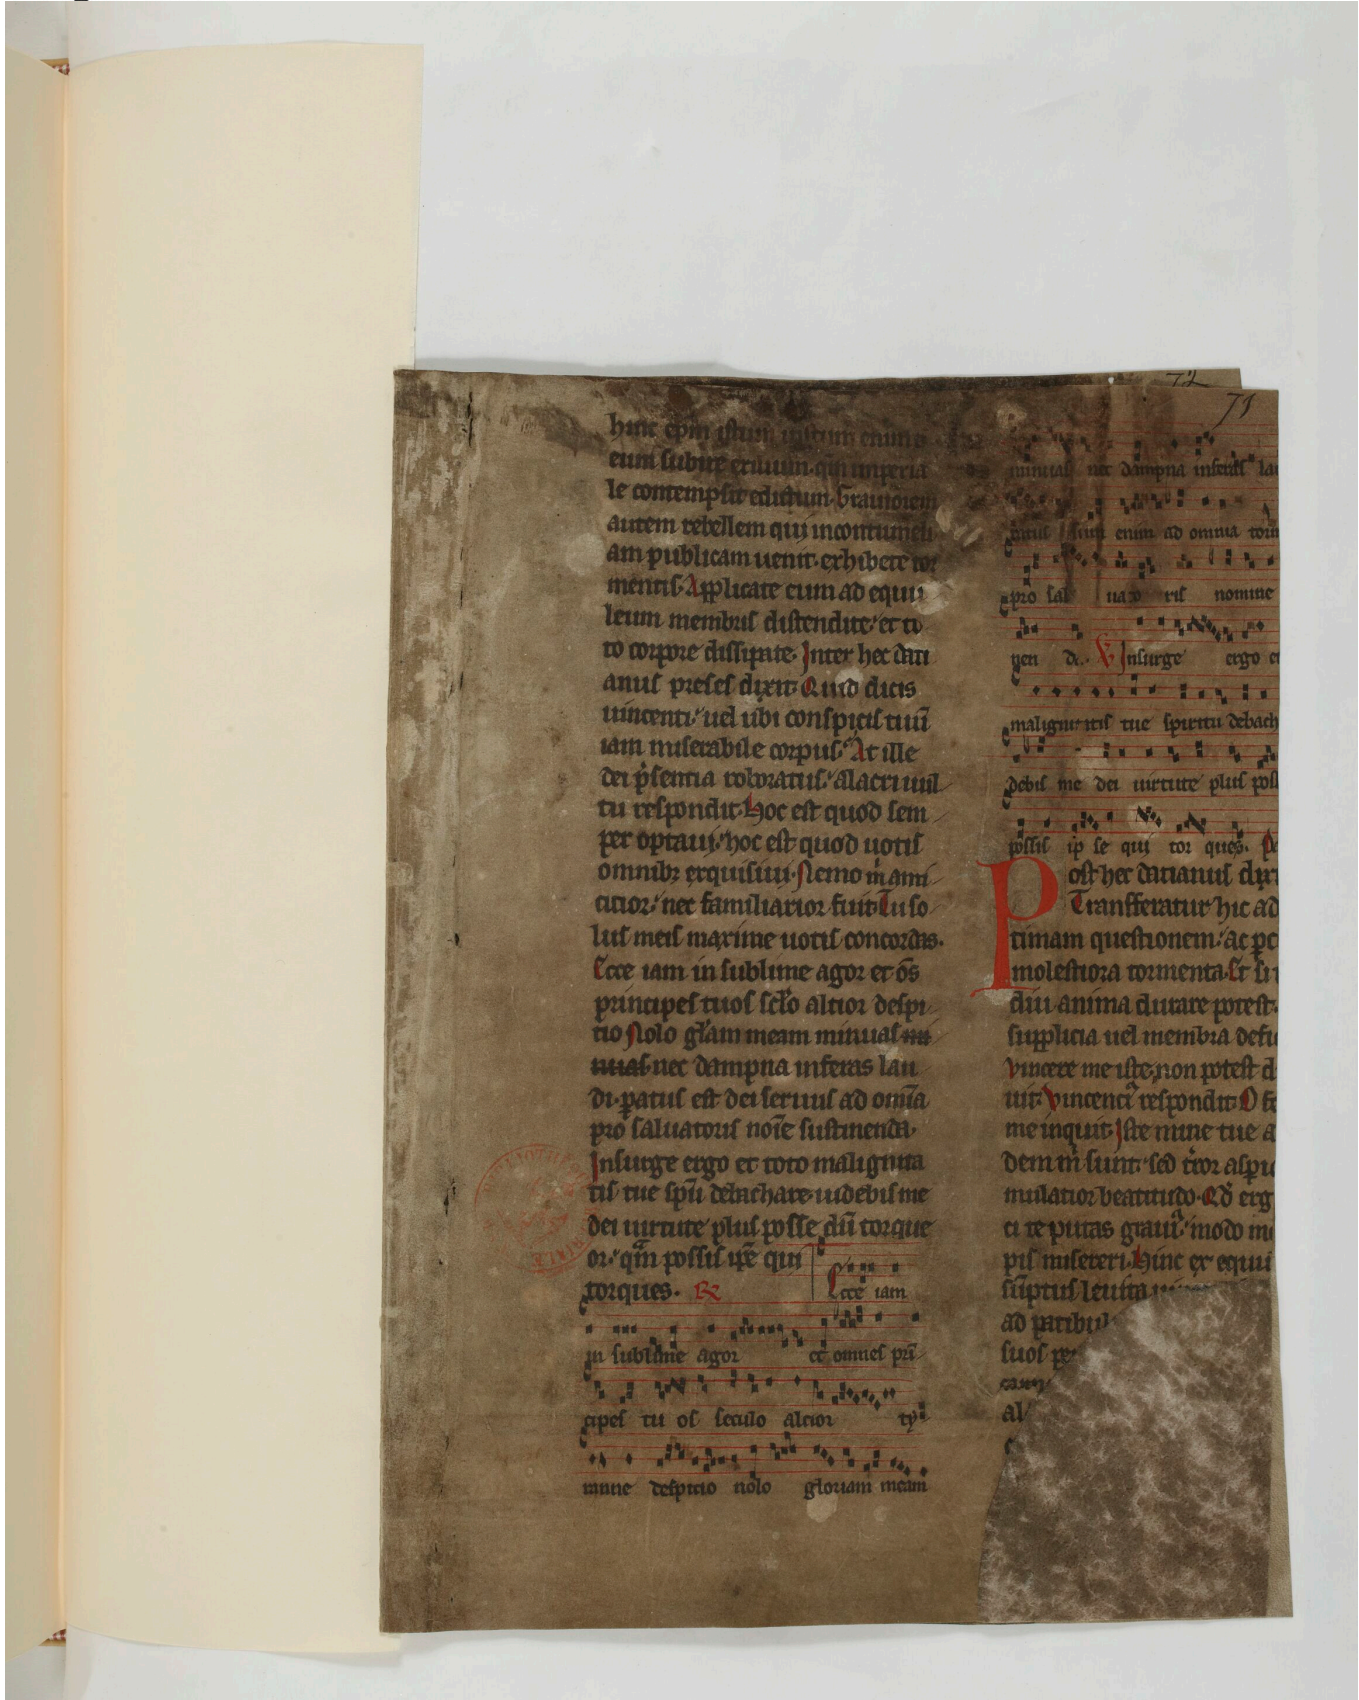 72
71
hinc ep̄m istum iustum enim ē
eum subire exilium. qui imperia
le contempsit edictum. Grauiorem
autem rebellem qui in contumeli
am publicam uenit. exhibete tor
mentis. Applicate eum ad equu
leum membris distendite. et to
to corpore dissipate. Inter hec dati
anus preses dixit. Quid dicis
uincenti. uel ubi conspicis tuū
iam miserabile corpus. At ille
dei p̄sentia roboratus. alacri uul
tu respondit. Hoc est quod sem
per optaui. hoc est quod uotis
omnibꝫ exquisiui. Nemo m̄ ami
citior. nec familiarior fuit. Tu so
lus meis maxime uotis concordas.
Ecce iam in sublime agor et om̄s
principes tuos sc̄lo altior despi
cio. Nolo gl̄am meam minuas mi
nuas nec dampna inferas lau
di. patus est dei seruus ad om̄ia
pro saluatoris noīe sustinenda.
Insurge ergo et toto malignita
tis tue sp̄u debachare. uidebis me
dei uirtute plus posse dū torque
or. quā possis ip̄e qui
torques. R
Ecce iam
in sublime agor et omnes prī
cipes tu os seculo altior ty
ranne despicio nolo gloriam meam
minuas nec dampna inferas lau
enim ad omnia torm
pro sal uato ris nomine
nen da. V Insurge ergo et
malignitatis tue spiritu debach
debis me dei uirtute plus poss
possis ip se qui tor ques.
Post hec datianus dixi
Transferatur hic ad
timam questionem. ac p
molestiora tormenta. Et si
diu anima durare potest.
supplicia uel membra defi
vincere me iste non potest d
uit. Vincenti respondit. O fe
me inquit. Iste mine tue a
dem m̄ sunt. sed t̄ror aspi
mulatior beatitudo. Qd̄ erg
ci te putas graui. modo mi
pis misereri. Hinc ex equu
sūptus leuita
ad patibul
suos pe
al